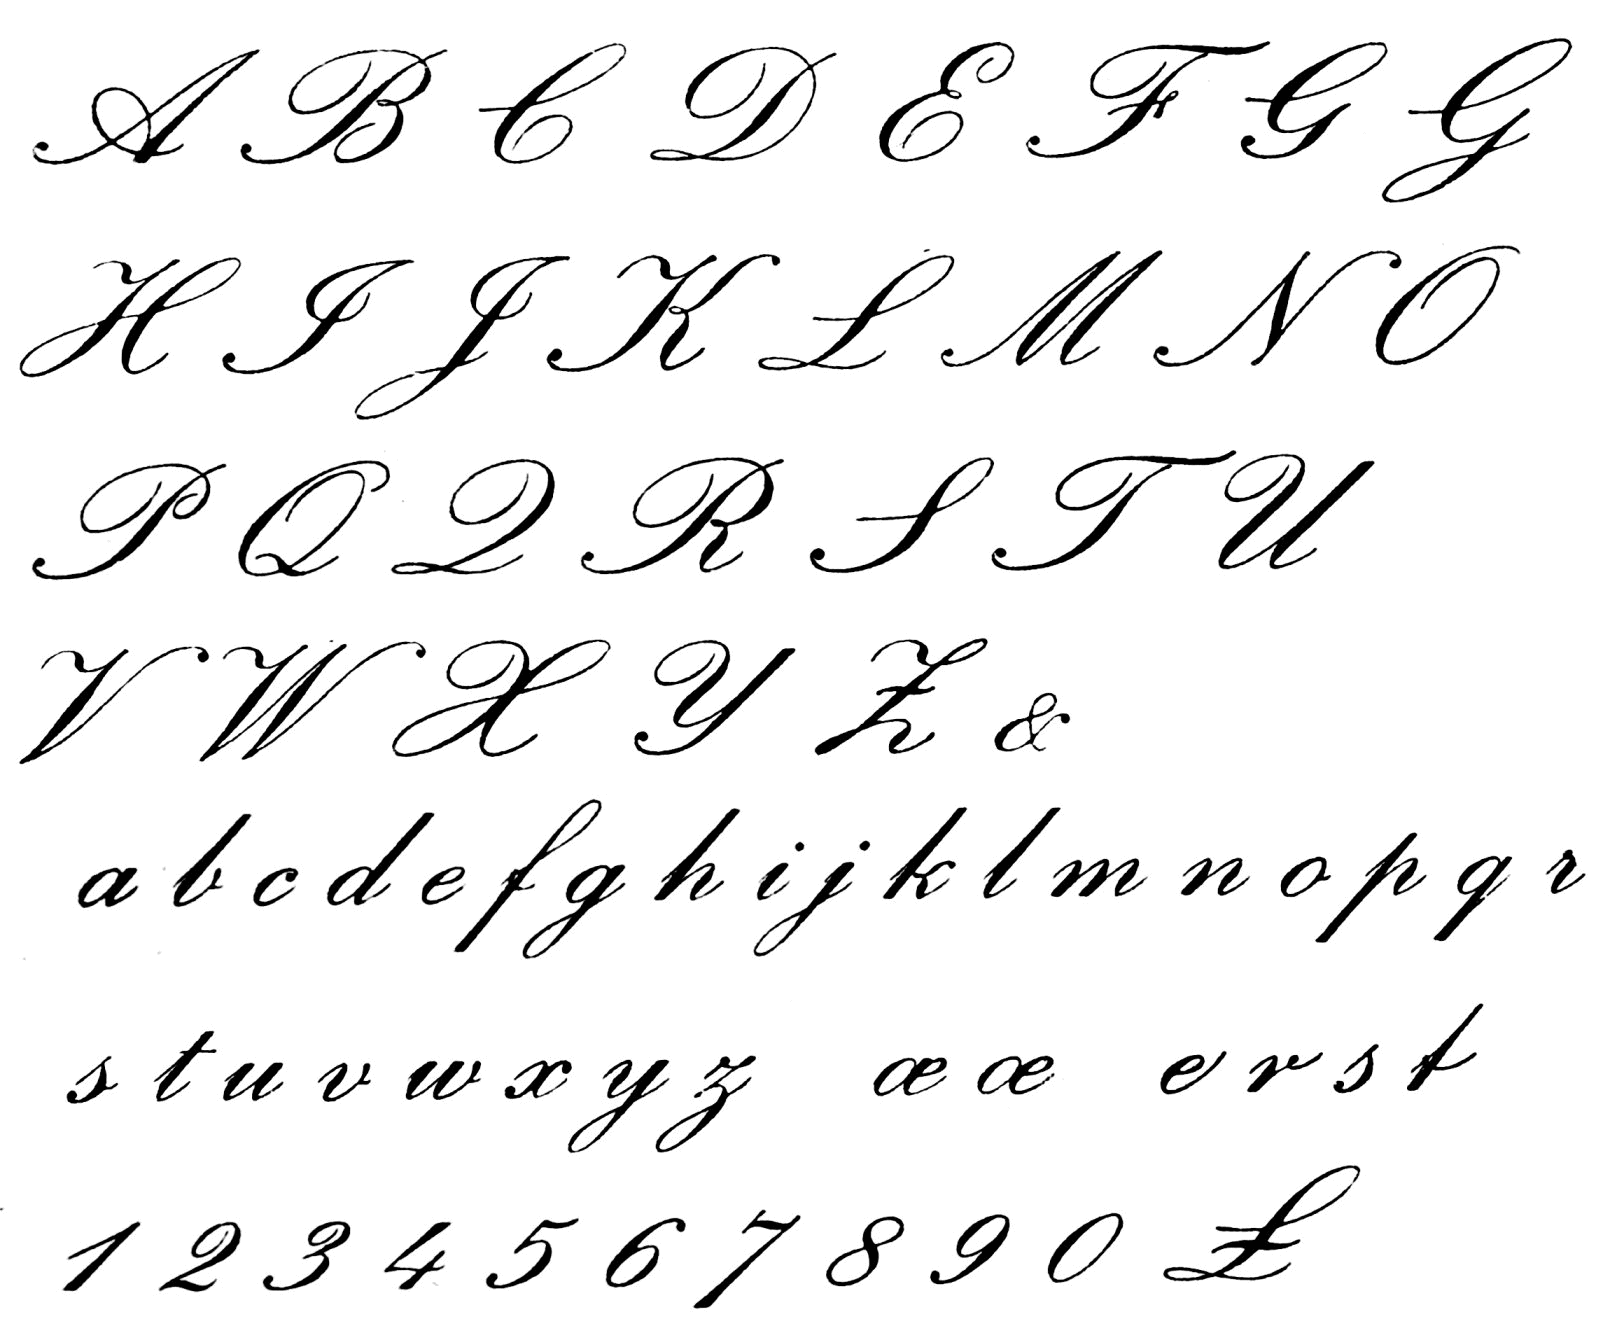 A B C D E F G G
H I J K L M N O
P Q Q R S T U
V W X Y Z &
a b c d e f g h i j k l m n o p q r
s t u v w x y z æ œ e r s t
1 2 3 4 5 6 7 8 9 0 £